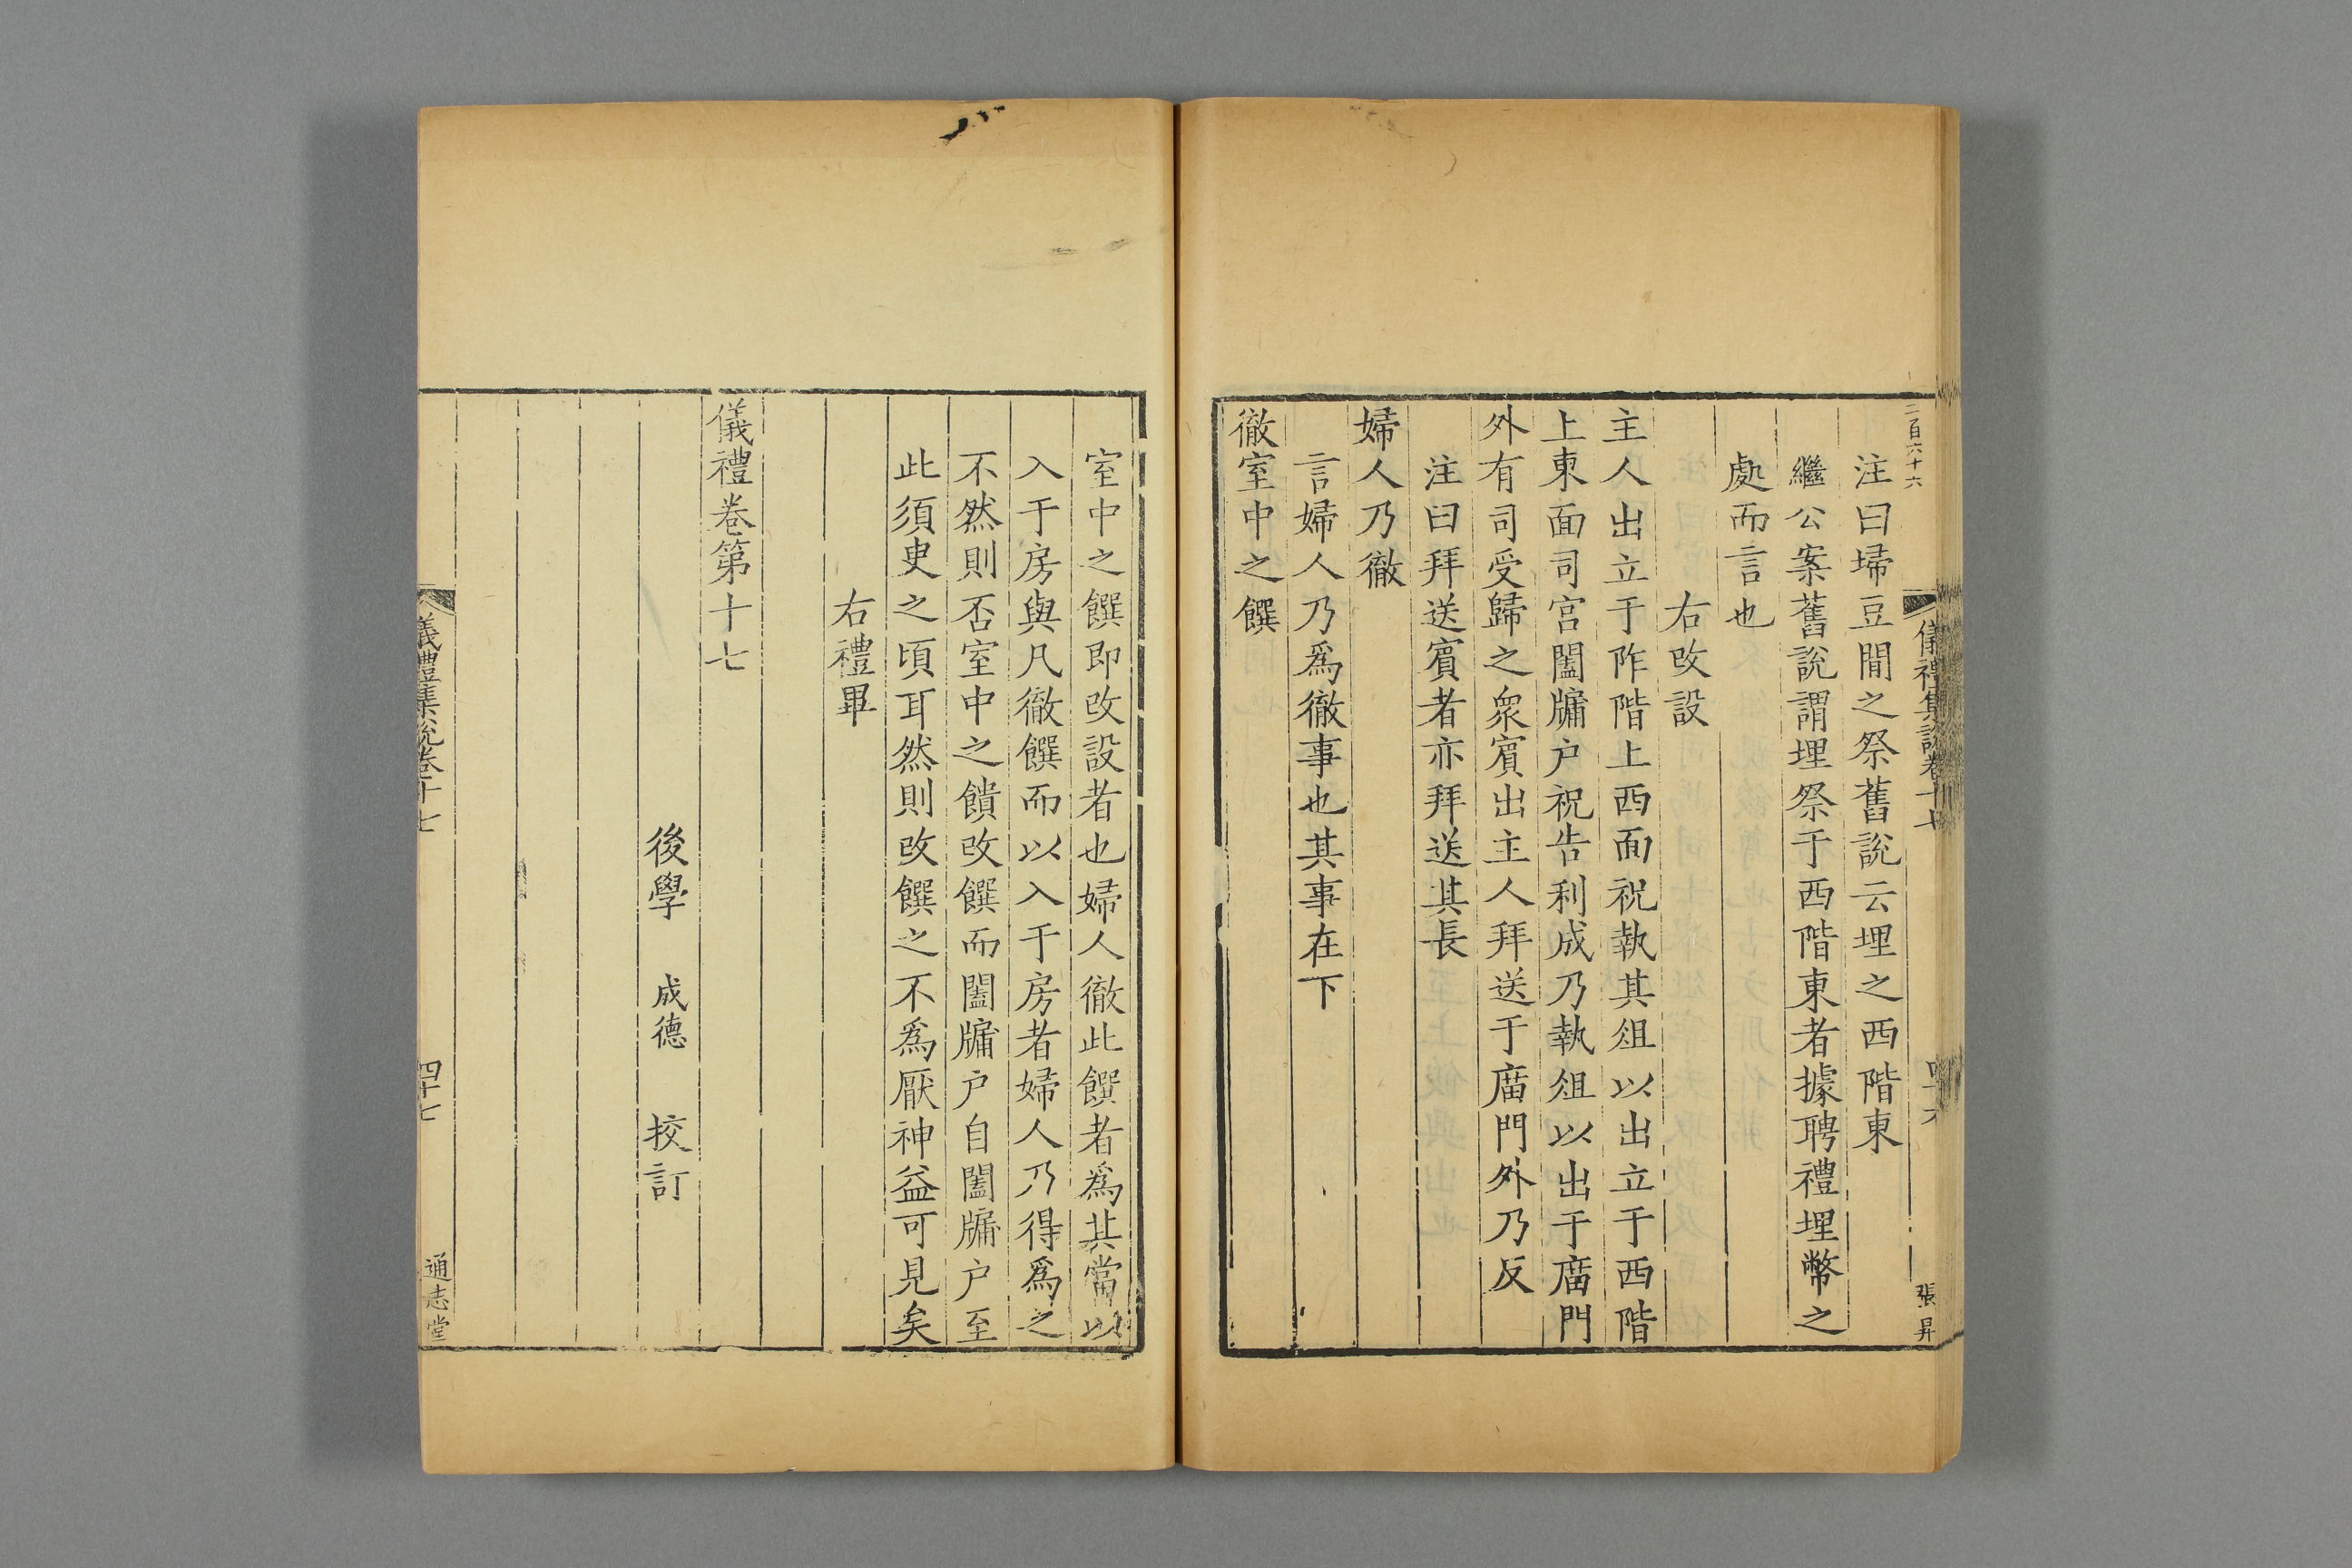 二百六十六
儀禮集說卷十七
張昇
注曰埽豆閒之祭舊說云埋之西階東
繼公案舊說謂埋祭于西階東者據聘禮埋幣之
處而言也
右改設
主人出立于阼階上西面祝執其俎以出立于西階
上東面司宫闔牖户祝告利成乃執俎以出于廟門
外有司受歸之衆賓出主人拜送于廟門外乃反
注曰拜送賓者亦拜送其長
婦人乃徹
言婦人乃爲徹事也其事在下
徹室中之饌
室中之饌即改設者也婦人徹此饌者爲其當以
入于房與凡徹饌而以入于房者婦人乃得爲之
不然則否室中之饋改饌而闔牖户自闔牖户至
此須臾之頃耳然則改饌之不爲厭神益可見矣
右禮畢
儀禮卷第十七
後學 成德 挍訂
儀禮集說卷十七
四十七
通志堂